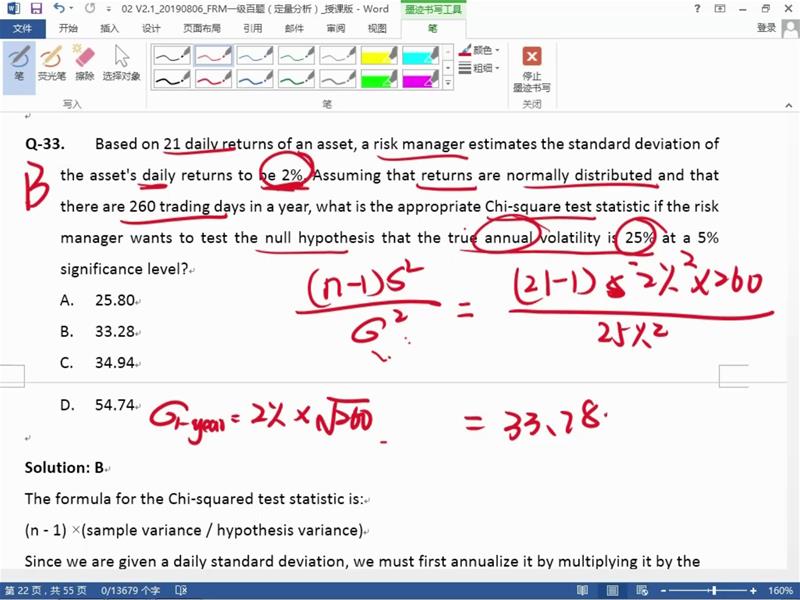 02 V2.1_20190806_FRM一级百题（定量分析）_授课版 - Word
墨迹书写工具
登录
文件 开始 插入 设计 页面布局 引用 邮件 审阅 视图 笔
笔 荧光笔 擦除 选择对象
颜色
粗细
停止
墨迹书写
写入 笔 关闭
Q-33. Based on 21 daily returns of an asset, a risk manager estimates the standard deviation of
the asset's daily returns to be 2%. Assuming that returns are normally distributed and that
B
there are 260 trading days in a year, what is the appropriate Chi-square test statistic if the risk
manager wants to test the null hypothesis that the true annual volatility is 25% at a 5%
significance level?
A. 25.80
B. 33.28
C. 34.94
D. 54.74
(n-1)S² / σ² = (21-1) 2%² × 260 / 25%²
σ1-year = 2% × √260
= 33.28
Solution: B
The formula for the Chi-squared test statistic is:
(n - 1) ×(sample variance / hypothesis variance)
Since we are given a daily standard deviation, we must first annualize it by multiplying it by the
第 22 页，共 55 页 0/13679 个字 160%